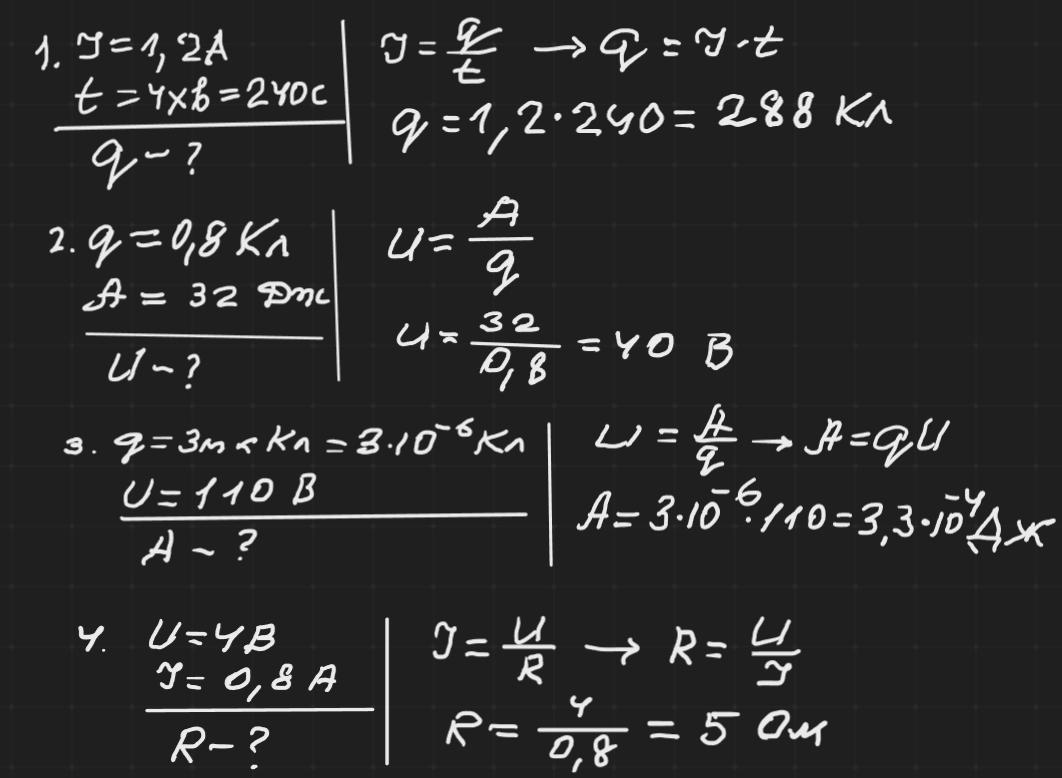 1. I = 1,2 A
t = 4 хв = 240 с
q - ?
I = q/t → q = I · t
q = 1,2 · 240 = 288 Кл
2. q = 0,8 Кл
A = 32 Дж
U - ?
U = A/q
U = 32/0,8 = 40 В
3. q = 3 мк Кл = 3 · 10⁻⁶ Кл
U = 110 В
A - ?
U = A/q → A = qU
A = 3 · 10⁻⁶ · 110 = 3,3 · 10⁻⁴ Дж
4. U = 4 В
I = 0,8 A
R - ?
I = U/R → R = U/I
R = 4/0,8 = 5 Ом